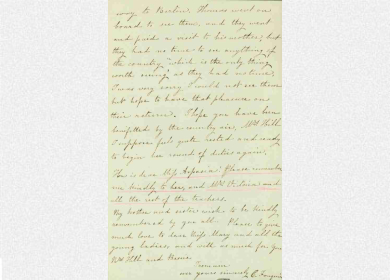 way to Parlow. Thomas went on
board to see them, and they went
and paid a visit to his mother; but
they had no time to see anything of
the country, which is the only thing
worth seeing, as they had no time.
I was very sorry I could not see them
but hope to have that pleasure on
their return. I hope you have been
benefitted by the country air. Mrs Hill
I suppose feels quite rested and ready
to begin her round of duties again.
How is dear Miss Aspasia? Please remember
me kindly to her, and Mrs Victoria and
all the rest of the teachers.
My mother and sisters wish to be kindly
remembered by you all. Please to give
much love to dear Miss Mary and all the
young ladies, and with as much for you
Mrs Hill and
I remain
ever yours sincerely